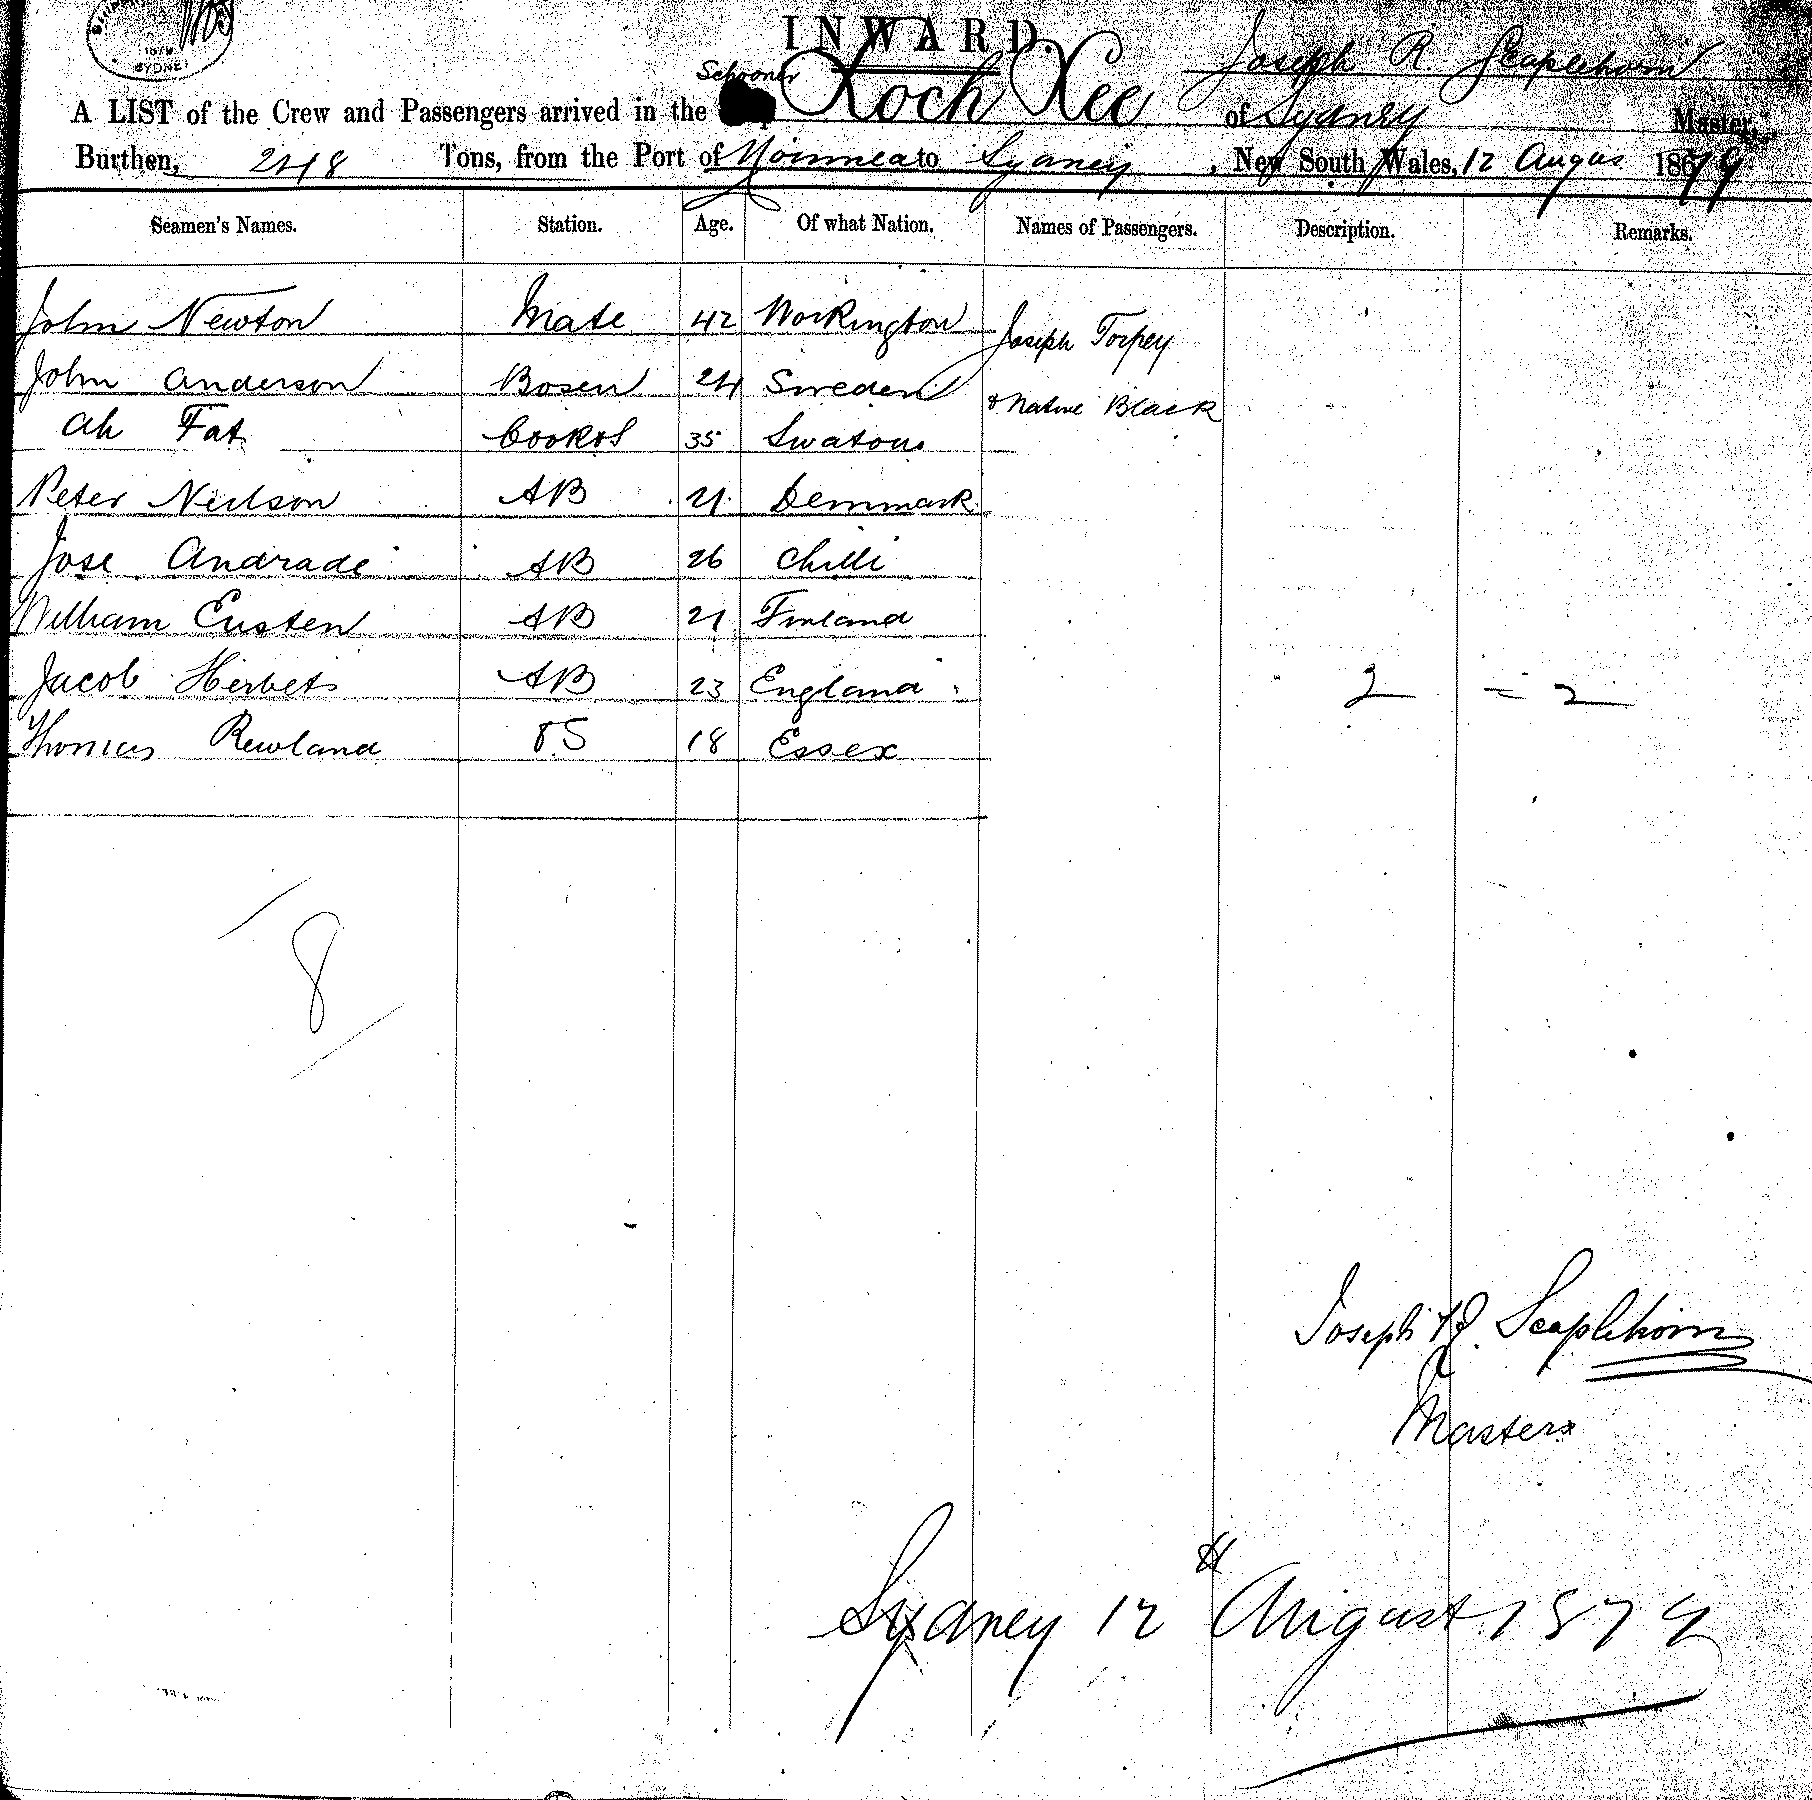 1879
SYDNEY
INWARD.
Schooner Loch Lee Joseph R Scaplehorn
A LIST of the Crew and Passengers arrived in the of Sydney Master,
Burthen, 248 Tons, from the Port of Noumea to Sydney, New South Wales, 12 Augus 1879
Seamen's Names. Station. Age. Of what Nation. Names of Passengers. Description. Remarks.
John Newton Mate 42 Workington Joseph Torpey
John Anderson Bosen 24 Sweden & Native Black
Ah Fat Cook & S 35 Swatow
Peter Neilson AB 21 Denmmark
Jose Andrade AB 26 Chilli
William Eusten AB 21 Finland
Jacob Herbets AB 23 England 2 = 2
Thomas Rewland OS 18 Essex
8
Joseph R. Scaplehorn
Master
Sydney 12th August 1879